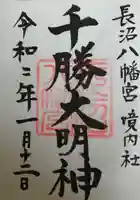 長沼八幡宮境内社
千勝大明神
令和二年一月十二日